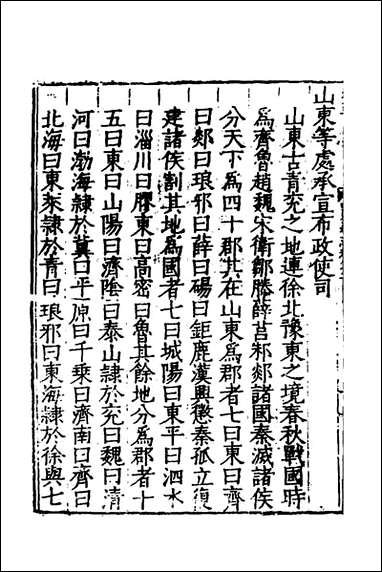 山東等處承宣布政使司
山東古青兖之地連徐北豫東之境春秋戰國時
爲齊魯趙魏宋衛鄒滕薛莒邾郯諸國秦滅諸侯
分天下爲四十郡其在山東爲郡者七曰東曰齊
曰郯曰琅邪曰薛曰碭曰鉅鹿漢興懲秦孤立復
建諸侯割其地爲國者七曰城陽曰東平曰泗水
曰淄川曰膠東曰高密曰魯其餘地分爲郡者十
五曰東曰山陽曰濟陰曰泰山隷於兖曰魏曰清
河曰渤海隷於冀曰平原曰千乗曰濟南曰齊曰
北海曰東萊隷於青曰琅邪曰東海隷於徐與七